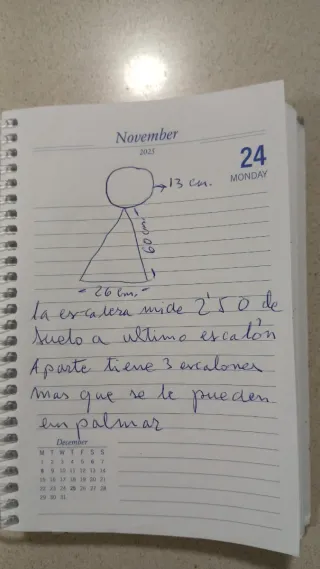 November
2025
24
MONDAY
13 cm.
60 cm.
26 cm.
la escalera mide 2'50 de
suelo a ultimo escalón
Aparte tiene 3 escalones
mas que se le pueden
empalmar
December
M T W T F S S
1 2 3 4 5 6 7
8 9 10 11 12 13 14
15 16 17 18 19 20 21
22 23 24 25 26 27 28
29 30 31